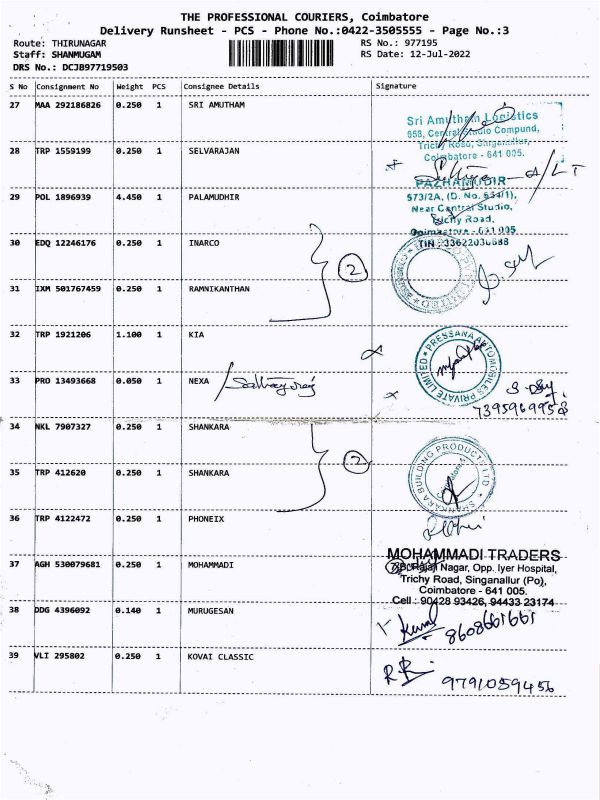 THE PROFESSIONAL COURIERS, Coimbatore
Delivery Runsheet - PCS - Phone No.:0422-3505555 - Page No.:3
Route: THIRUNAGAR
Staff: SHANMUGAM
DRS No.: DCJB97719503
RS No.: 977195
RS Date: 12-Jul-2022
S No Consignment No Weight PCS Consignee Details Signature
27 MAA 292186826 0.250 1 SRI AMUTHAM
Sri Amutham Logistics
658, Central Studio Compund,
Trichy Road, Singanallur,
Coimbatore - 641 005.
28 TRP 1559199 0.250 1 SELVARAJAN
29 POL 1896939 4.450 1 PALAMUDHIR
PAZHAMUDIR
573/2A, (D. No. 654/1),
Near Central Studio,
Trichy Road,
Coimbatore - 641 005.
30 EDQ 12246176 0.250 1 INARCO
2
31 IXM 501767459 0.250 1 RAMNIKANTHAN
32 TRP 1921206 1.100 1 KIA
PRESSANA AUTOMOBILES PRIVATE LIMITED
33 PRO 13493668 0.050 1 NEXA
7395969958
34 NKL 7907327 0.250 1 SHANKARA
2
SHANKARA BUILDING PRODUCTS LTD
35 TRP 412620 0.250 1 SHANKARA
36 TRP 4122472 0.250 1 PHONEIX
37 AGH 530079681 0.250 1 MOHAMMADI
MOHAMMADI TRADERS
Nagar, Opp. Iyer Hospital,
Trichy Road, Singanallur (Po),
Coimbatore - 641 005.
Cell : 90428 93426, 94433 23174
38 DDG 4396092 0.140 1 MURUGESAN
Kumar
8608661661
39 VLI 295802 0.250 1 KOVAI CLASSIC
9791059456